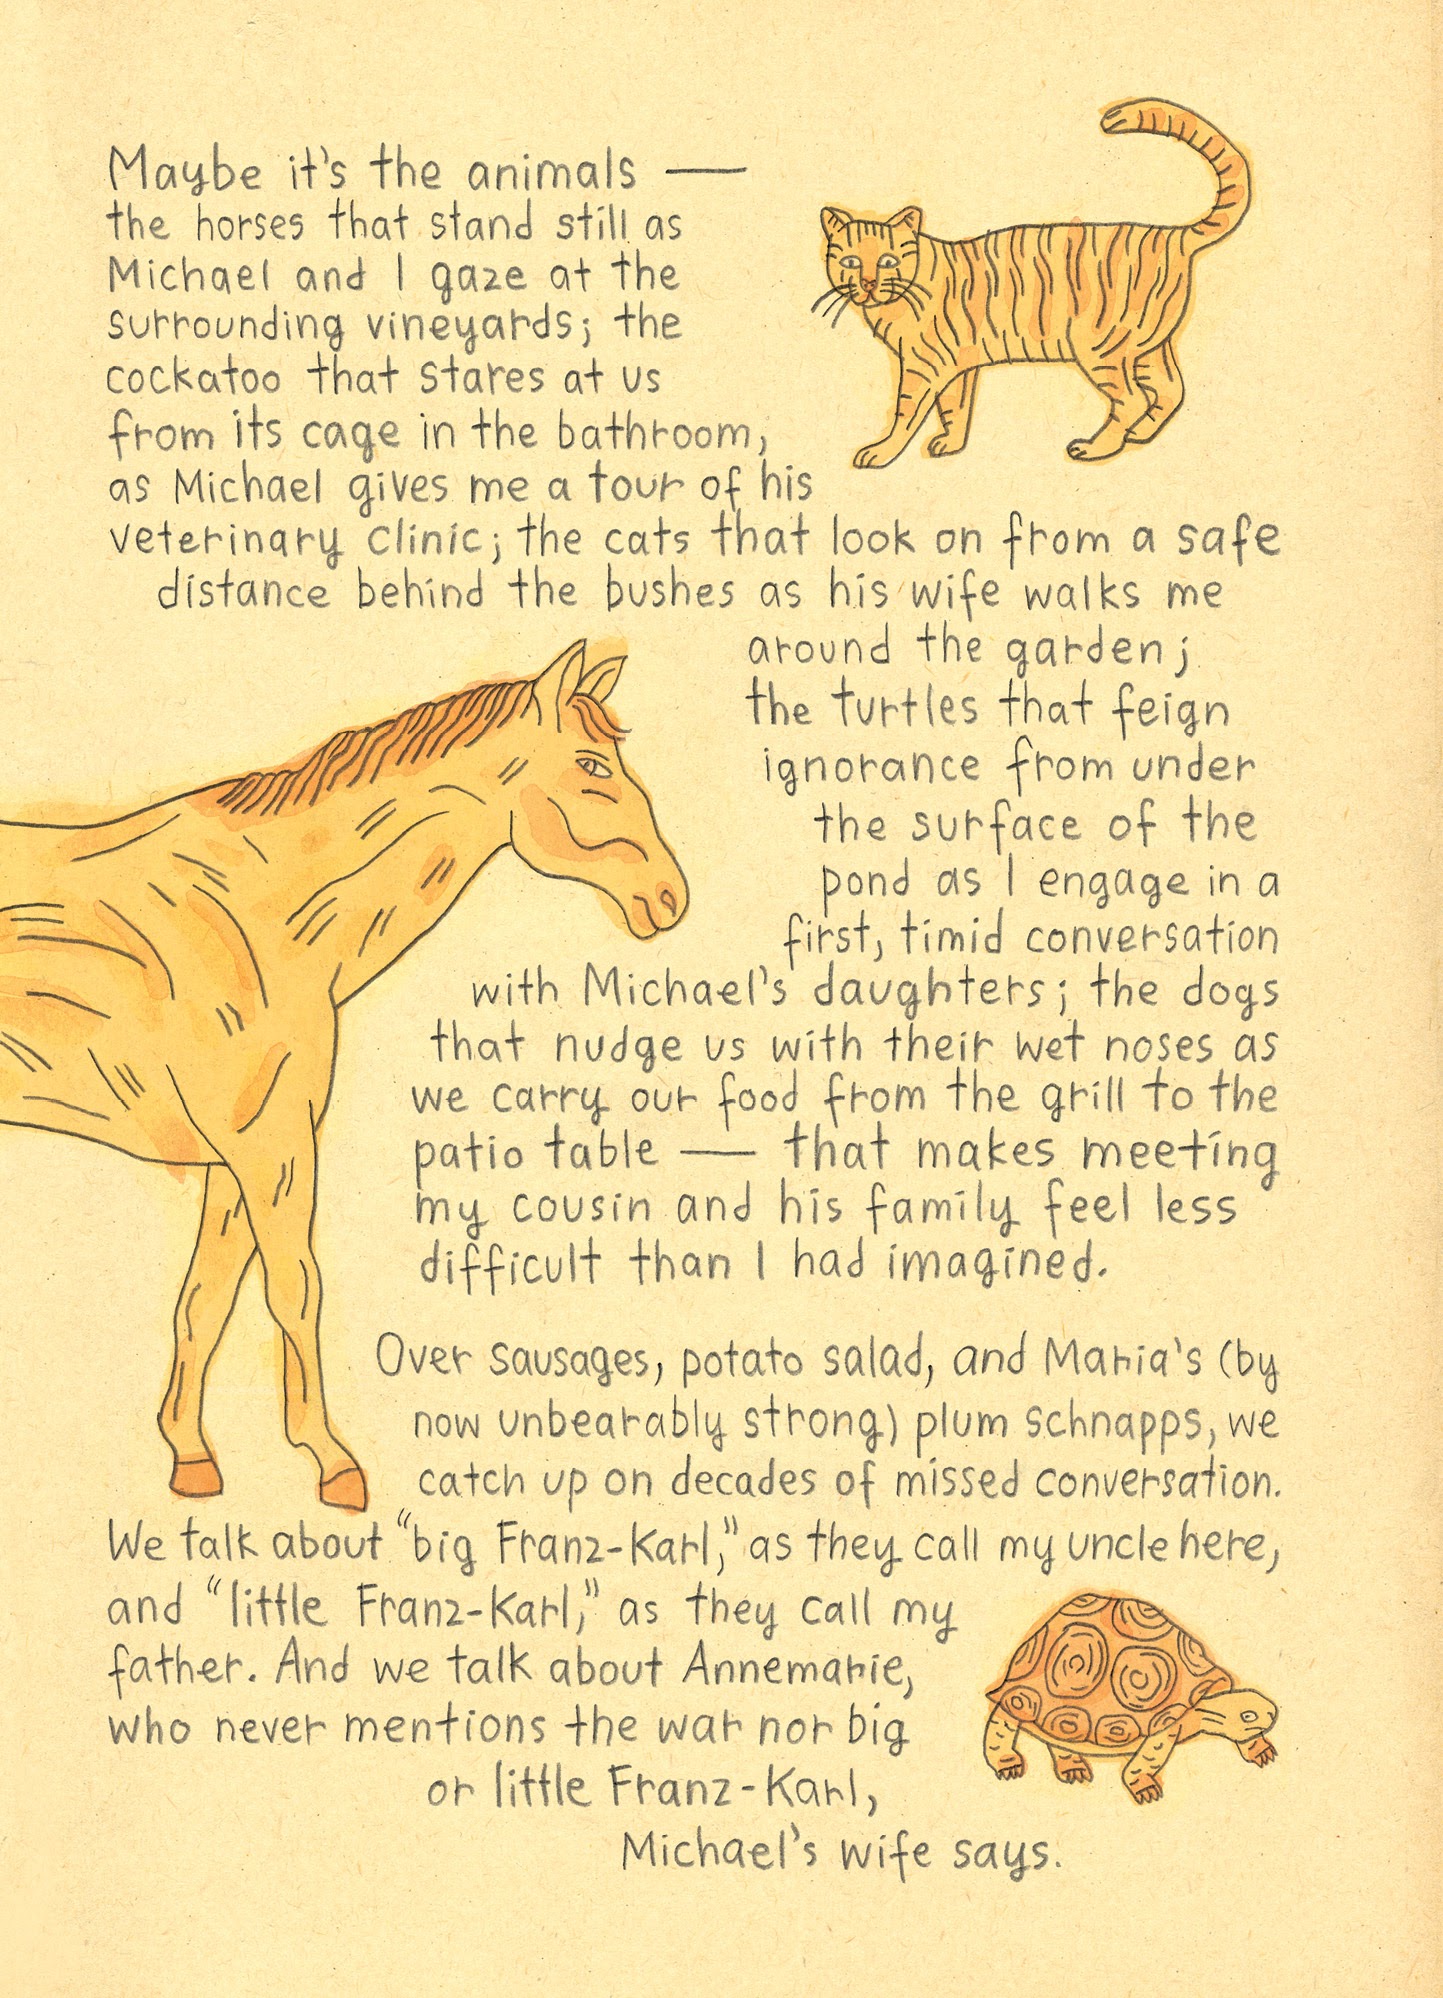 Maybe it's the animals —
the horses that stand still as
Michael and I gaze at the
surrounding vineyards; the
cockatoo that stares at us
from its cage in the bathroom,
as Michael gives me a tour of his
veterinary clinic; the cats that look on from a safe
distance behind the bushes as his wife walks me
around the garden;
the turtles that feign
ignorance from under
the surface of the
pond as I engage in a
first, timid conversation
with Michael's daughters; the dogs
that nudge us with their wet noses as
we carry our food from the grill to the
patio table — that makes meeting
my cousin and his family feel less
difficult than I had imagined.
Over sausages, potato salad, and Maria's (by
now unbearably strong) plum schnapps, we
catch up on decades of missed conversation.
We talk about "big Franz-Karl," as they call my uncle here,
and "little Franz-Karl," as they call my
father. And we talk about Annemarie,
who never mentions the war nor big
or little Franz-Karl,
Michael's wife says.